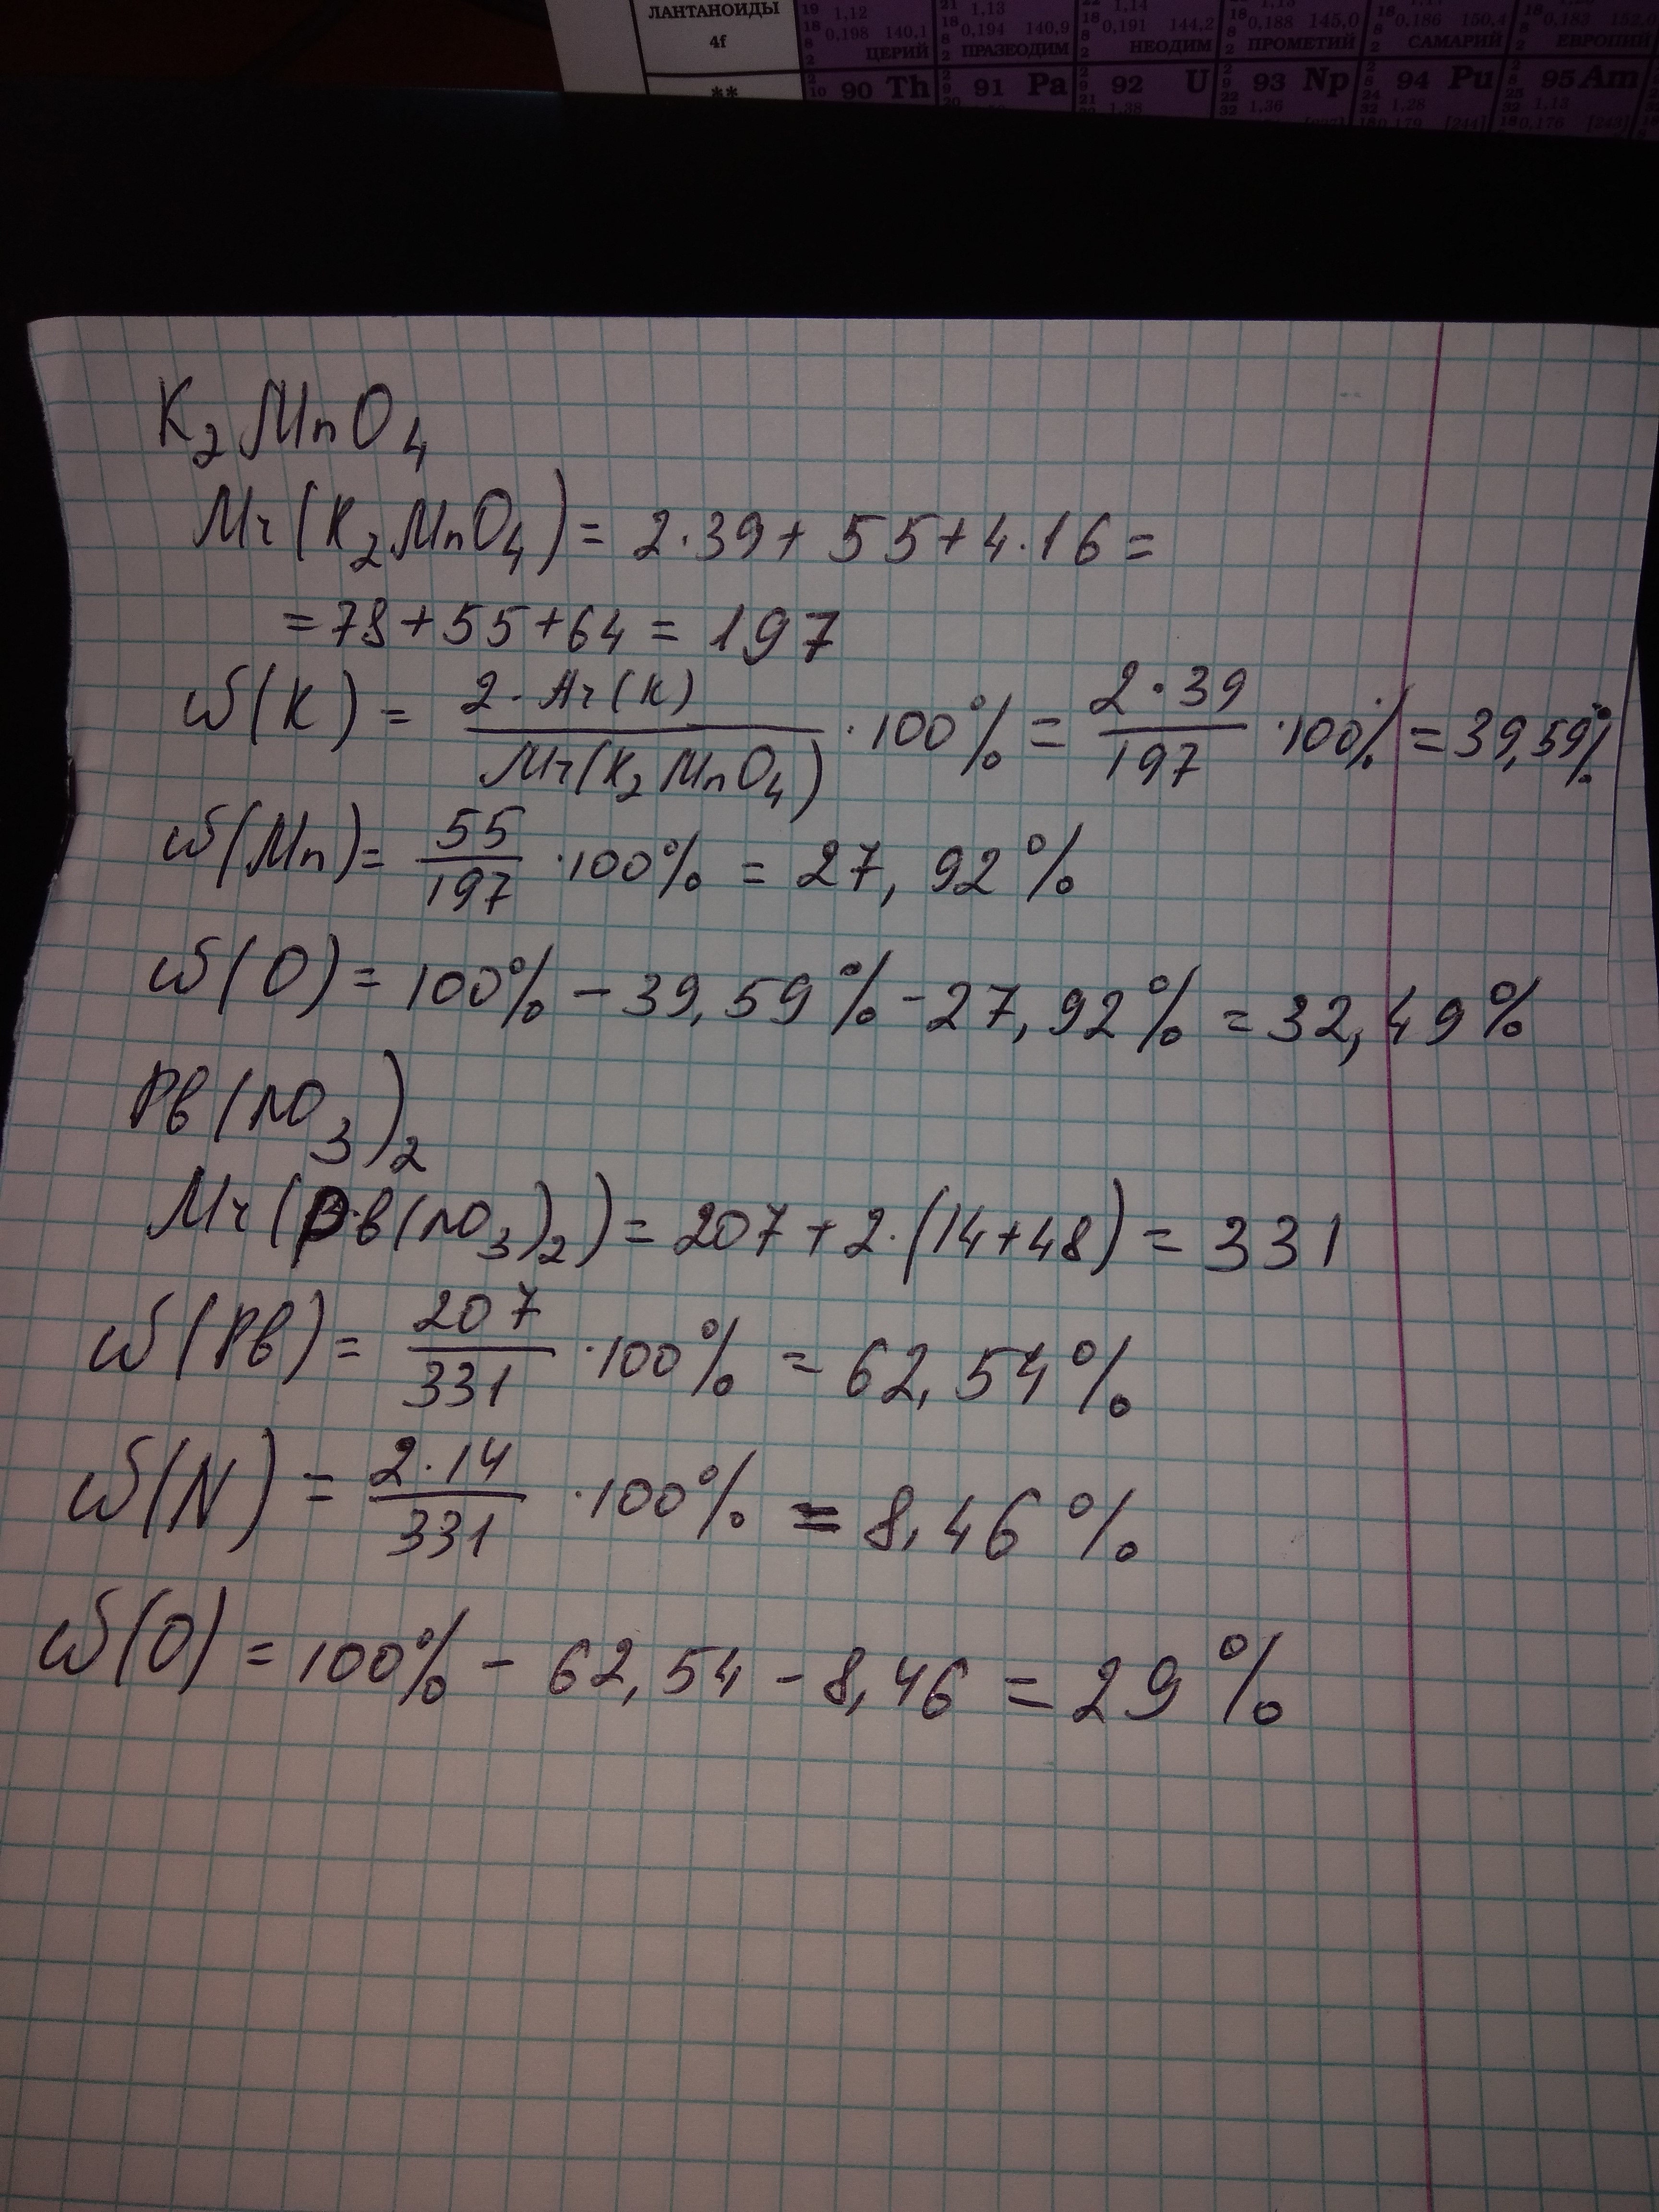 ЛАНТАНОИДЫ
4f
**
1,12
0,198 140,1
ЦЕРИЙ
1,13
0,194 140,9
ПРАЗЕОДИМ
1,14
0,191 144,2
НЕОДИМ
0,188 145,0
ПРОМЕТИЙ
0,186 150,4
САМАРИЙ
0,183 152,0
ЕВРОПИЙ
90 Th
91 Pa
92 U
1,38
93 Np
1,36
94 Pu
1,28
0,179 [244]
95 Am
1,13
0,176 [243]
K₂MnO₄
Mr(K₂MnO₄) = 2·39 + 55 + 4·16 =
= 78 + 55 + 64 = 197
ω(K) = 2·Ar(K) / Mr(K₂MnO₄) · 100% = 2·39 / 197 · 100% = 39,59%
ω(Mn) = 55 / 197 · 100% = 27,92%
ω(O) = 100% − 39,59% − 27,92% = 32,49%
Pb(NO₃)₂
Mr(Pb(NO₃)₂) = 207 + 2·(14+48) = 331
ω(Pb) = 207 / 331 · 100% = 62,54%
ω(N) = 2·14 / 331 · 100% = 8,46%
ω(O) = 100% − 62,54 − 8,46 = 29%